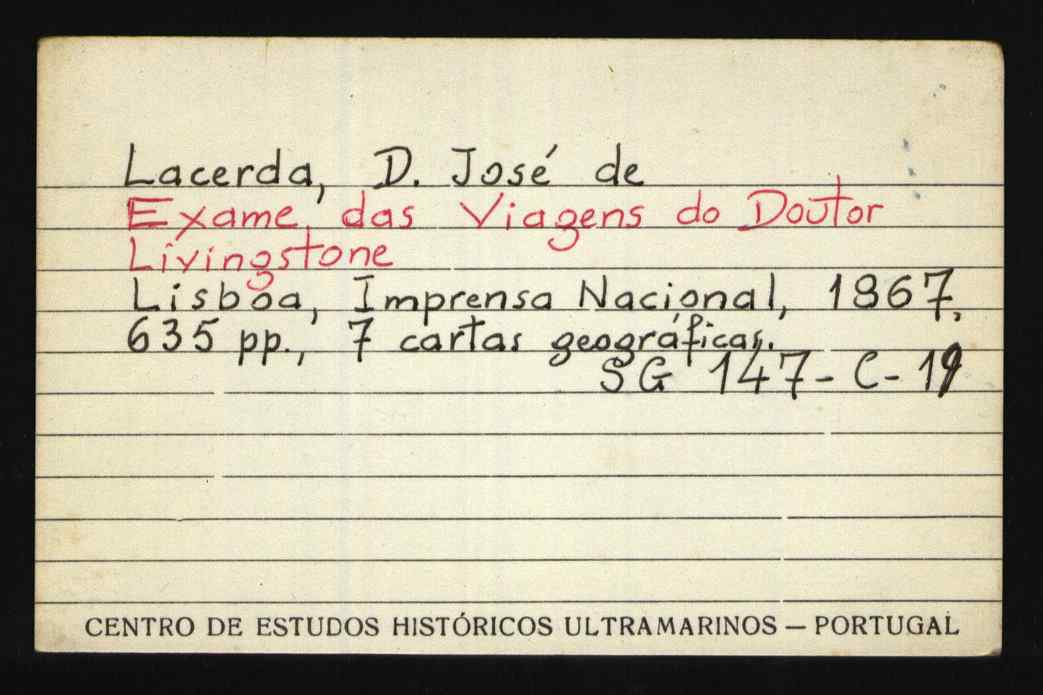 Lacerda, D. José de
Exame das Viagens do Doutor
Livingstone
Lisboa, Imprensa Nacional, 1867,
635 pp., 7 cartas geográficas.
SG 147-C-19
CENTRO DE ESTUDOS HISTÓRICOS ULTRAMARINOS — PORTUGAL